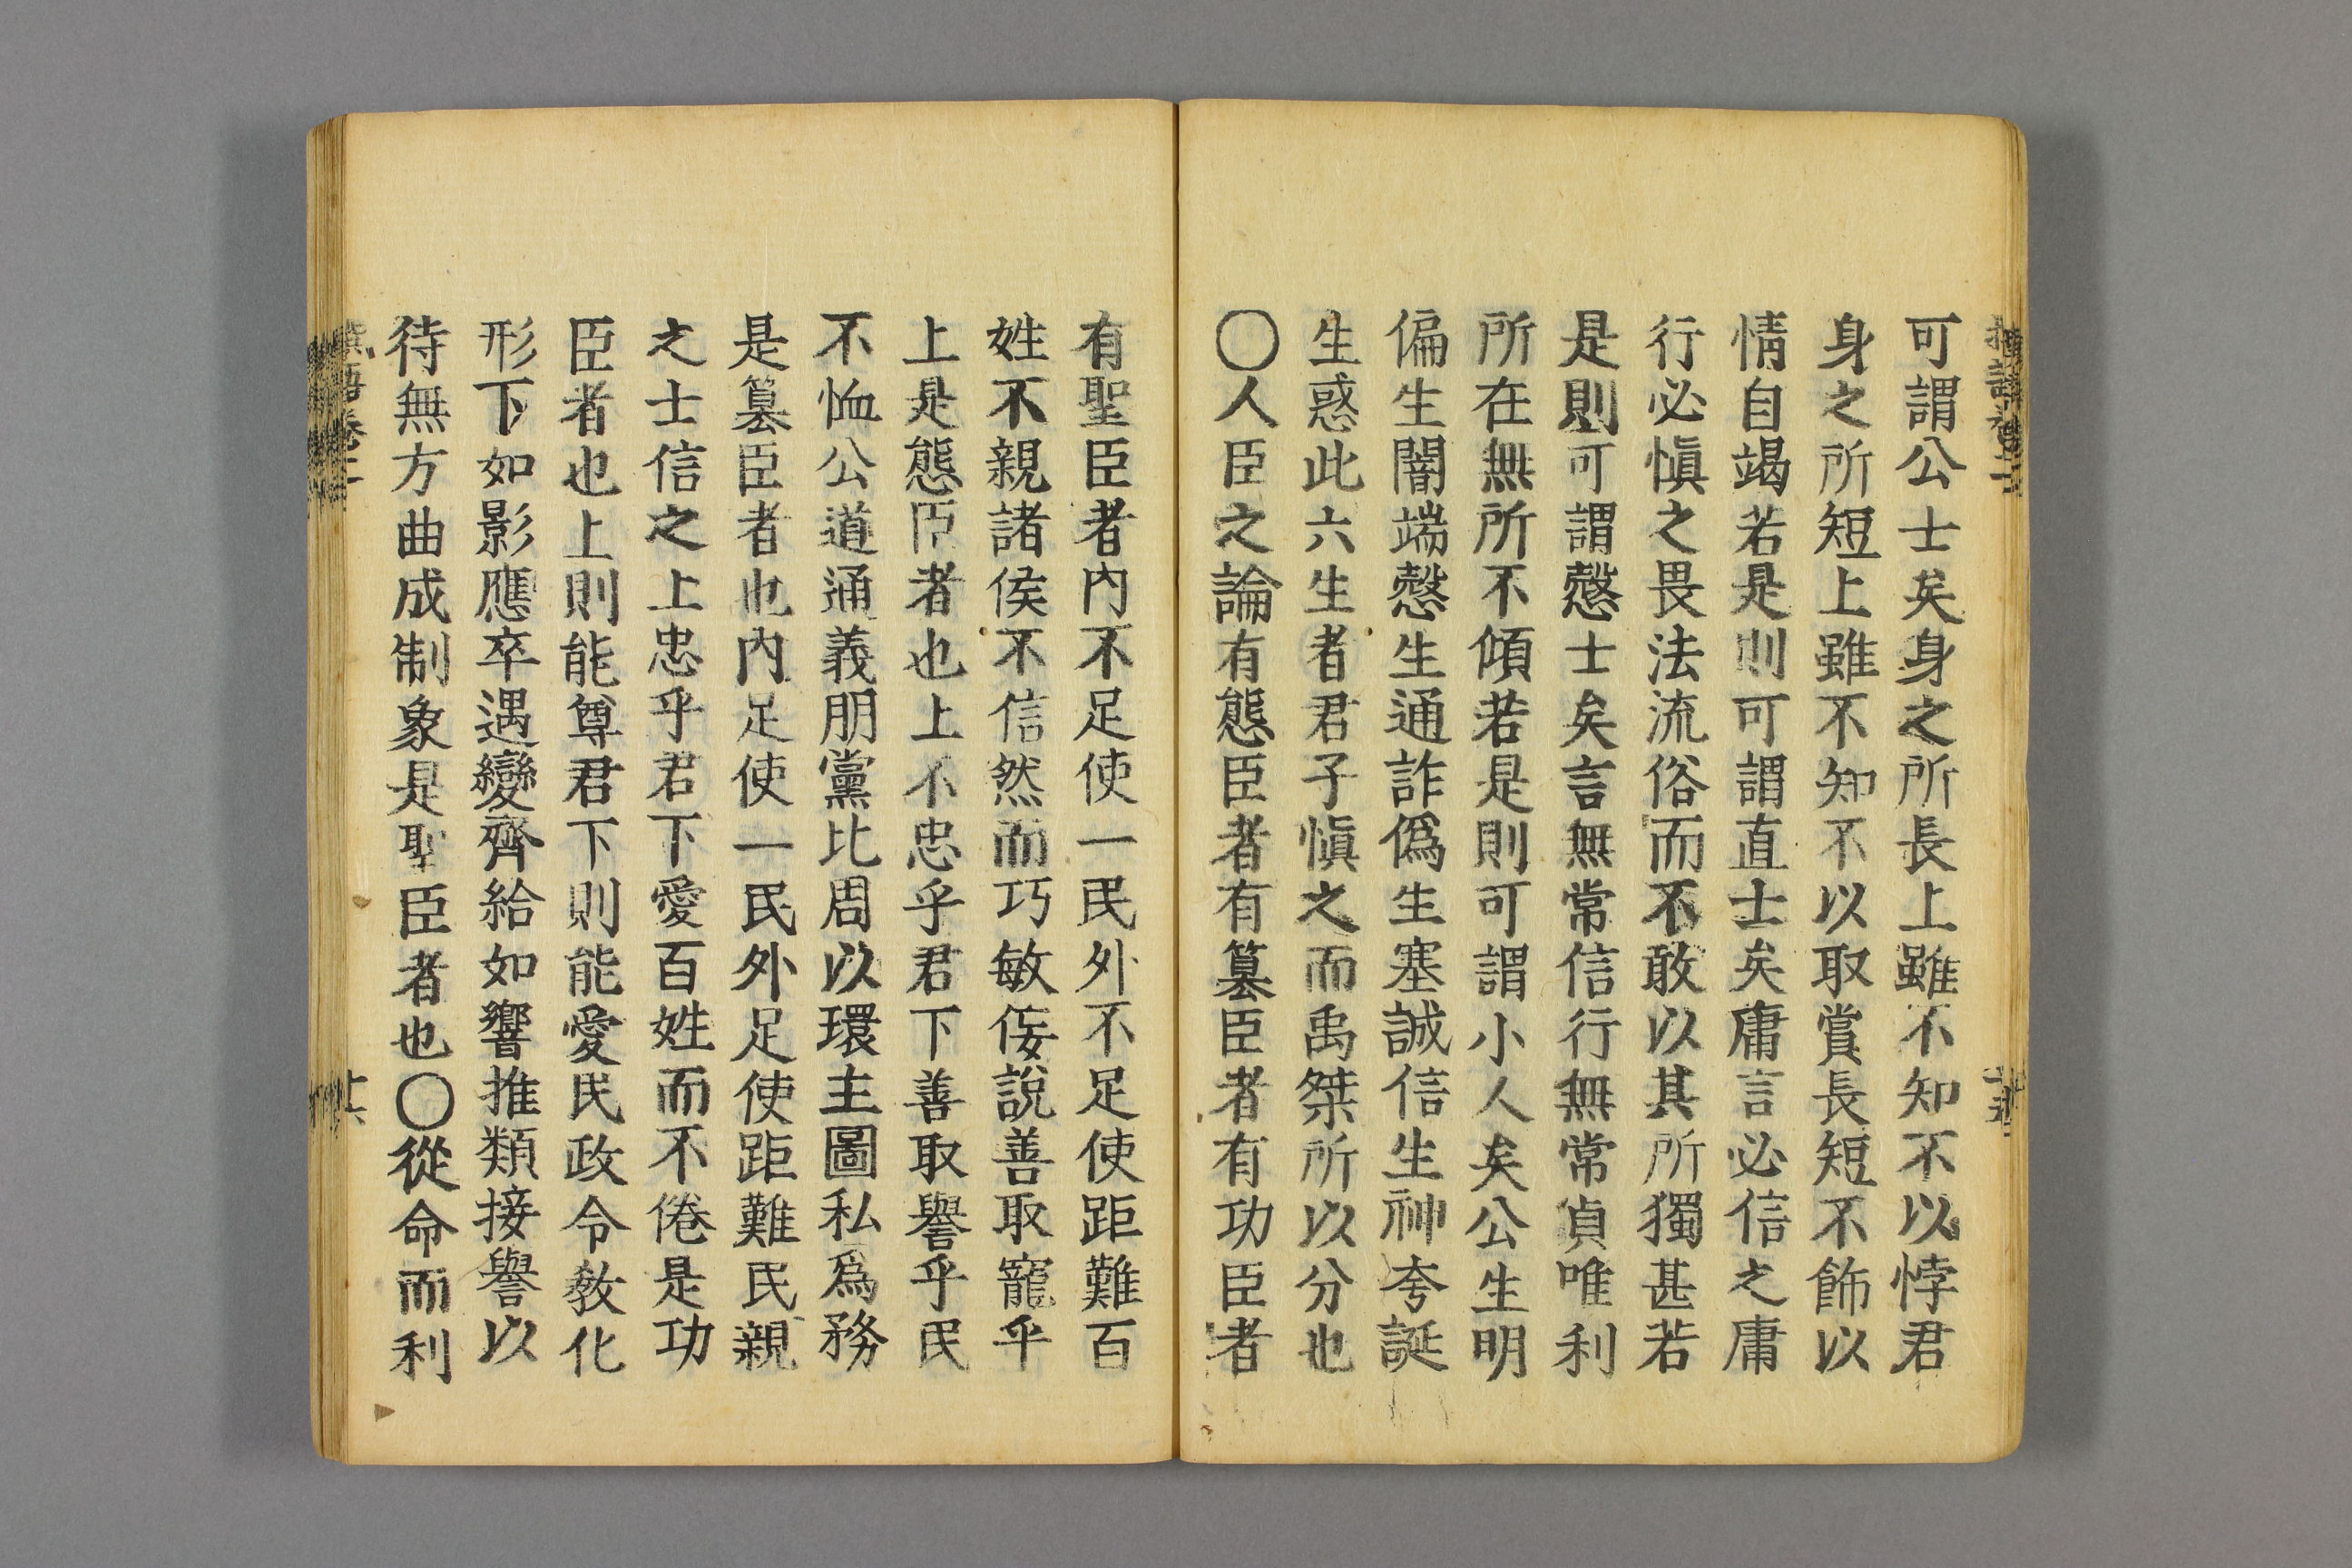 可謂公士矣身之所長上雖不知不以悖君
身之所短上雖不知不以取賞長短不飾以
情自竭若是則可謂直士矣庸言必信之庸
行必愼之畏法流俗而不敢以其所獨甚若
是則可謂愨士矣言無常信行無常貞唯利
所在無所不傾若是則可謂小人矣公生明
偏生闇端愨生通詐僞生塞誠信生神夸誕
生惑此六生者君子愼之而禹桀所以分也
〇人臣之論有態臣者有簒臣者有功臣者
有聖臣者內不足使一民外不足使距難百
姓不親諸侯不信然而巧敏佞說善取寵乎
上是態臣者也上不忠乎君下善取譽乎民
不恤公道通義朋黨比周以環主圖私爲務
是簒臣者也內足使一民外足使距難民親
之士信之上忠乎君下愛百姓而不倦是功
臣者也上則能尊君下則能愛民政令敎化
形下如影應卒遇變齊給如響推類接譽以
待無方曲成制象是聖臣者也〇從命而利